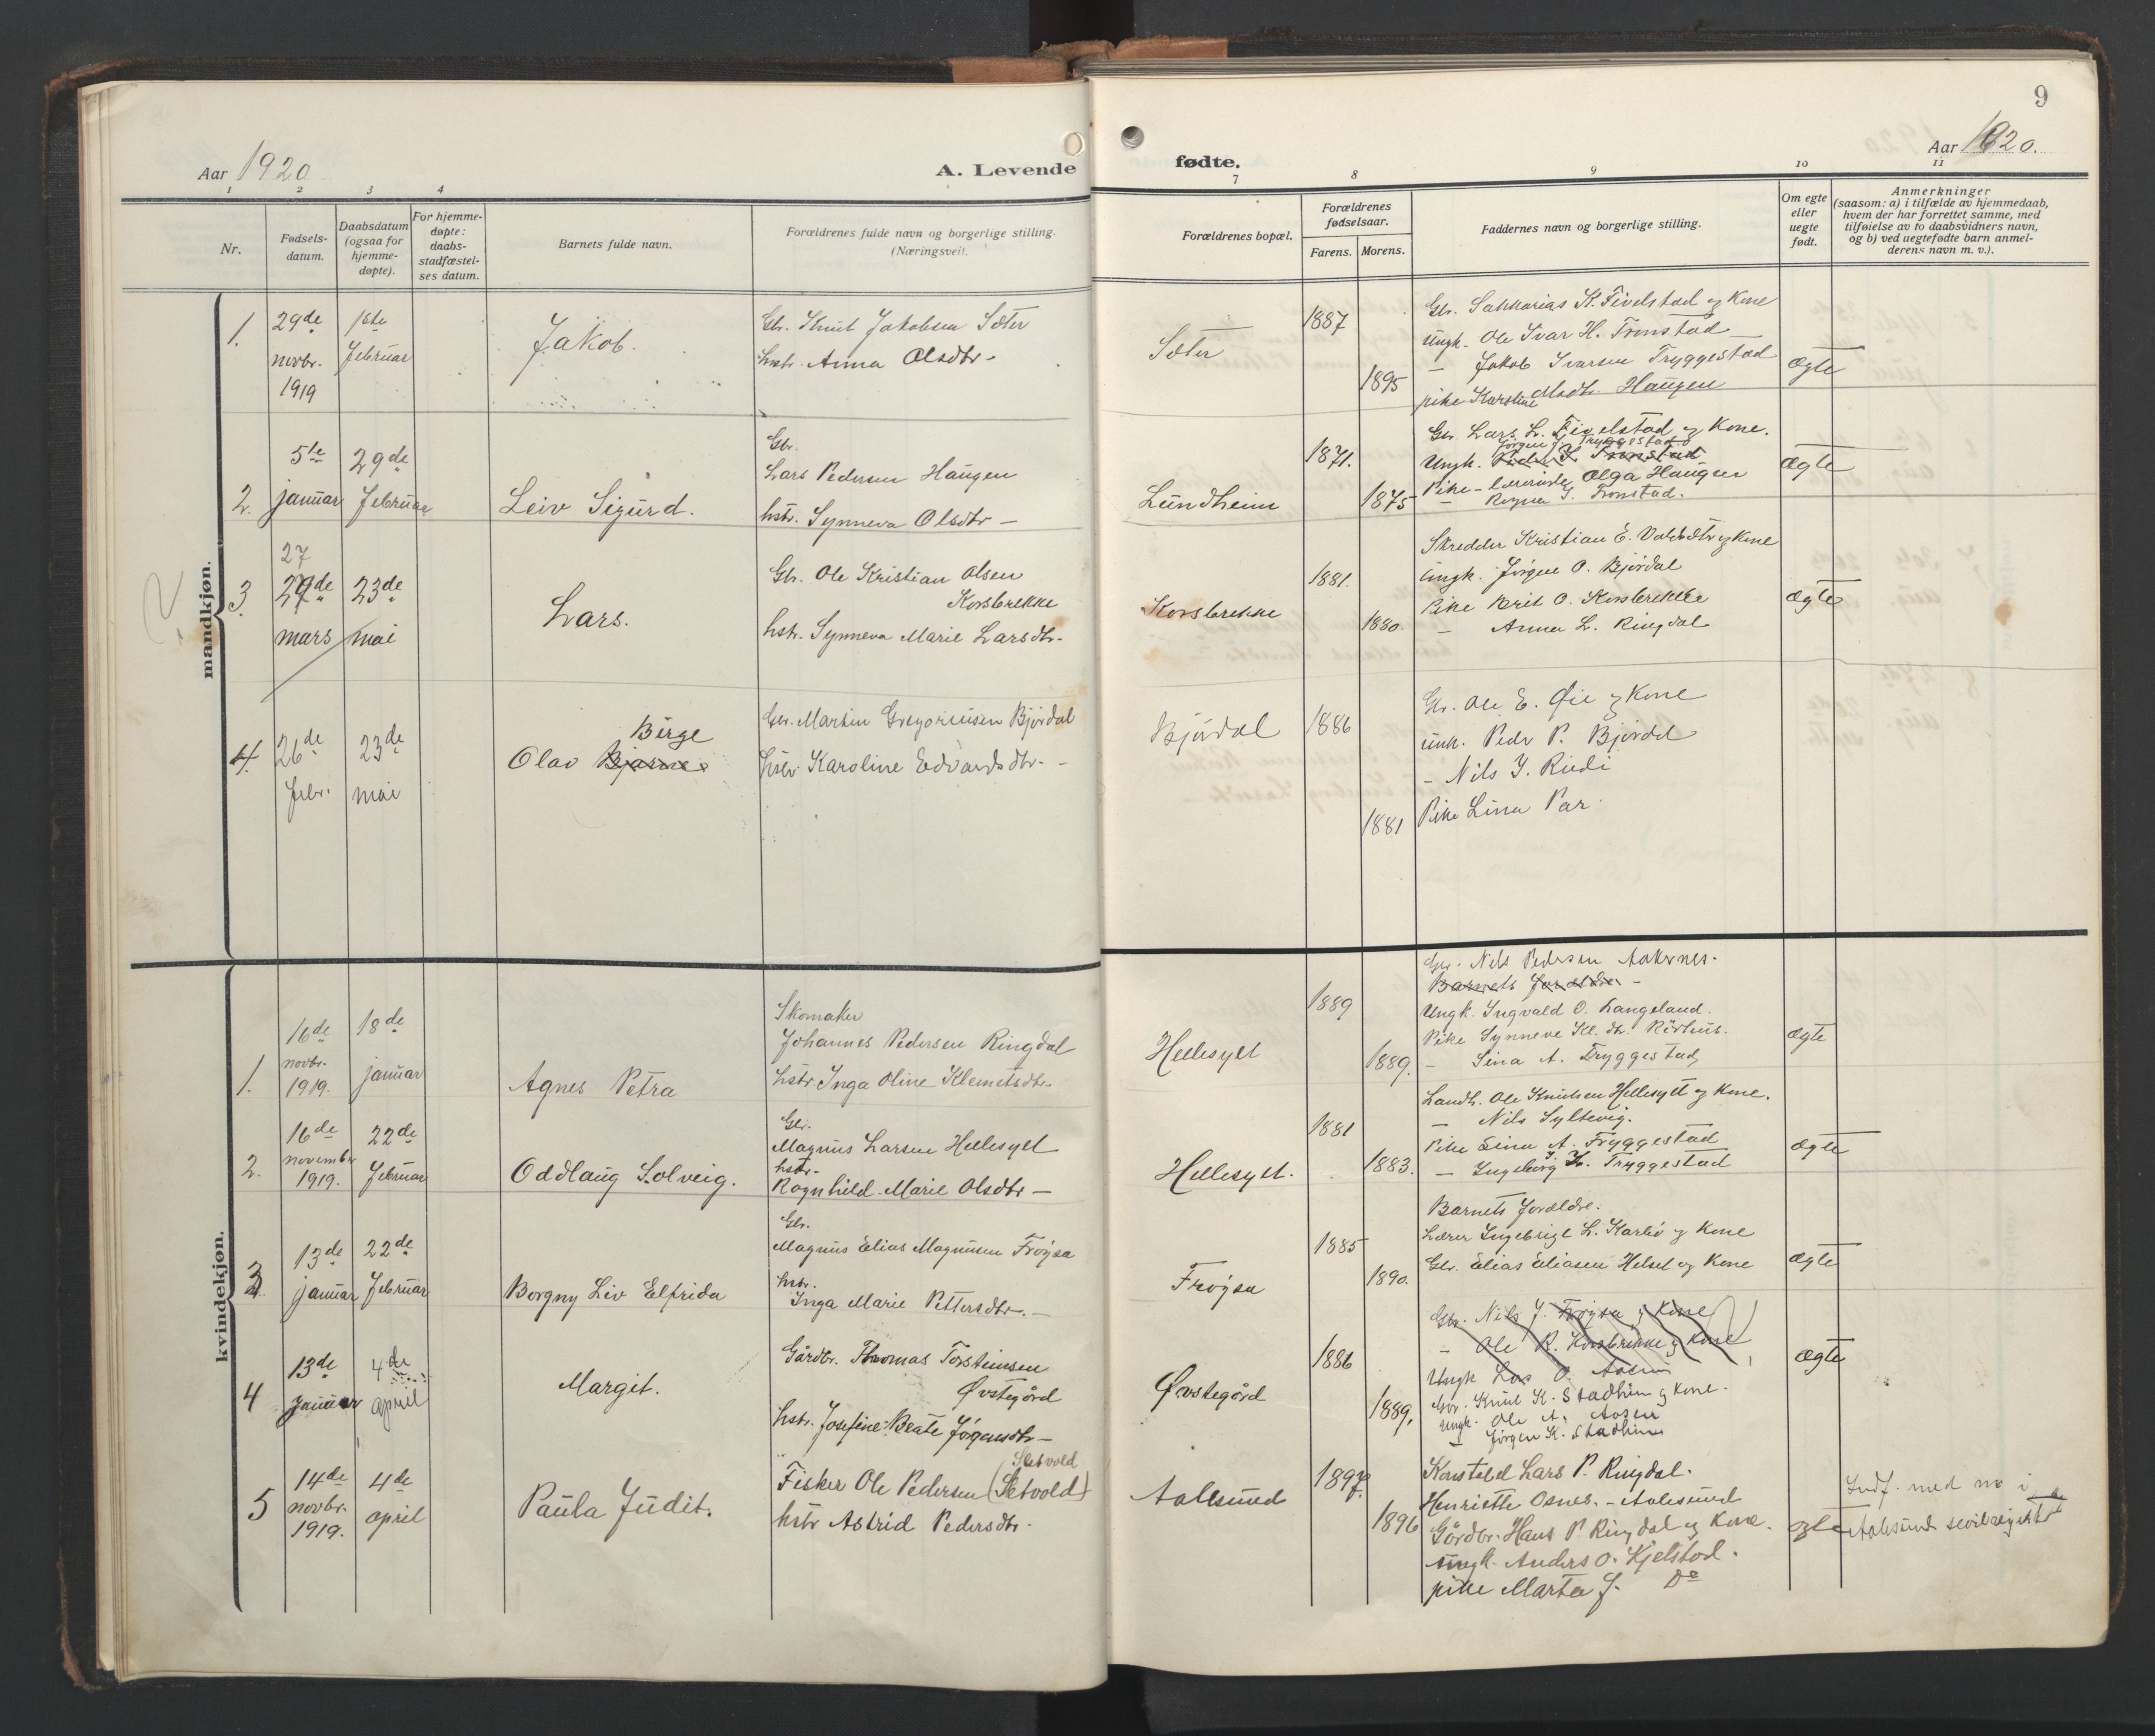 9
Aar 1920
A. Levende
fødte.
Aar 1920.
1 2 3 4
7 8 9 10 11
Nr.
Fødsels-
datum.
Daabsdatum
(ogsaa for
hjemme-
døpte).
For hjemme-
døpte:
daabs-
stadfæstel-
ses datum.
Barnets fulde navn.
Forældrenes fulde navn og borgerlige stilling.
(Næringsvei).
Forældrenes bopæl.
Forældrenes
fødselsaar.
Farens. Morens.
Faddernes navn og borgerlige stilling.
Om egte
eller
uegte
født.
Anmerkninger
(saasom: a) i tilfælde av hjemmedaab,
hvem der har forrettet samme, med
tilføielse av to daabsvidners navn,
og b) ved uegtefødte barn anmel-
derens navn m. v.).
mandkjøn.
1.
29de
novbr.
1919
1ste
februar
Jakob.
Gbr. Knut Jakobsen Sæter
hstr. Anna Olsdtr -
Sæter
1887
1895
Gbr. Sakkarias K. Fivelstad og Kone
Ungk. Ole Ivar H. Tronstad
- Jakob Ivarsen Tryggestad
pike Karoline Madtr. Haugen
ægte
2.
5te
januar
29de
februar
Leiv Sigurd.
Gbr.
Lars Pedersen Haugen
hstr. Synneva Olsdtr -
Lundheim
1871.
1875
Gbr. Lars L. Fivelstad og Kone.
Jörgen J. Tryggestad
Ungk. Peder K. Tronstad
Pike - Lærerinde Olga Haugen
- Ragna G. Tronstad.
ægte
3.
27
29de
mars
23de
mai
Lars.
Gbr. Ole Kristian Olsen
Korsbrekke
hstr. Synneva Marie Larsdtr -
Korsbrekke
1881.
1880.
Skredder Kristian E. Voldsæter og Kone
Ungk. Jörgen O. Björdal
Pike Berit O. Korsbrekke
- Anna L. Ringdal
ægte
4.
26de
febr.
23de
mai
Birge
Olav Bjarne
Gbr. Martin Gregoriusen Björdal
hstr. Karoline Edvardsdtr. -
Björdal
1886
1881
Gbr. Ole E. Øie og Kone
ungk. Peder P. Björdal
- Nils J. Rudi
Pike Lina Par.
kvindekjøn.
1.
16de
novbr.
1919.
18de
januar
Agnes Petra
Skomaker
Johannes Pedersen Ringdal
hstr. Inga Oline Klemetsdtr
Hellesylt
1889
1889.
Gbr. Nils Pedersen Aakernes.
Barnets forældre -
Ungk. Ingvald O. Langeland.
Pike Synneve Kl. dtr. Rörhus.
- Sina A. Tryggestad
ægte
2.
16de
november
1919.
22de
februar
Oddlaug Solveig.
Gbr.
Magnus Larsen Hellesylt
hstr.
Ragnhild Marie Olsdtr -
Hellesylt.
1881
1883.
Landh. Ole Knutsen Hellesylt og Kone.
- Nils Syltevig.
Pike Sina A. Tryggestad
- Ingeborg K. Tryggestad
ægte
3
13de
januar
22de
februar
Borgny Liv Elfrida
Gbr.
Magnus Elias Magnusen Fröysa
hstr.
Inga Marie Pettersdtr. -
Fröysa
1885
1890.
Barnets forældre.
Lærer Ingebrigt L. Karlsö og Kone
Gbr. Elias Eliasen Helset og Kone
ægte
4
13de
januar
4de
april
Margit.
Gårdbr. Thomas Torsteinsen
Øvstegård
hstr. Josefine Beate Jörgensdtr -
Øvstegård
1886
1889.
Gbr. Nils J. Fröysa og Kone
- Ole R. Korsbrekke og Kone
Ungk. Lars O. Aasen
Gbr. Knut K. Stadheim og Kone.
Ungk. Ole A. Aasen
- Jörgen K. Stadheim
ægte
5
14de
novbr.
1919.
4de
april
Paula Judit.
Setvold
Fisker Ole Pedersen (Setvold)
hstr Astrid Pedersdtr.
Aalesund
1897
1896
Konstabel Lars P. Ringdal.
Henriette Osnes. - Aalesund
Gårdbr. Hans P. Ringdal og Kone.
ungk. Anders O. Kjelstad.
pike Marta J. Do
ægte
Indf. med no i
Aalesunds sevilregister